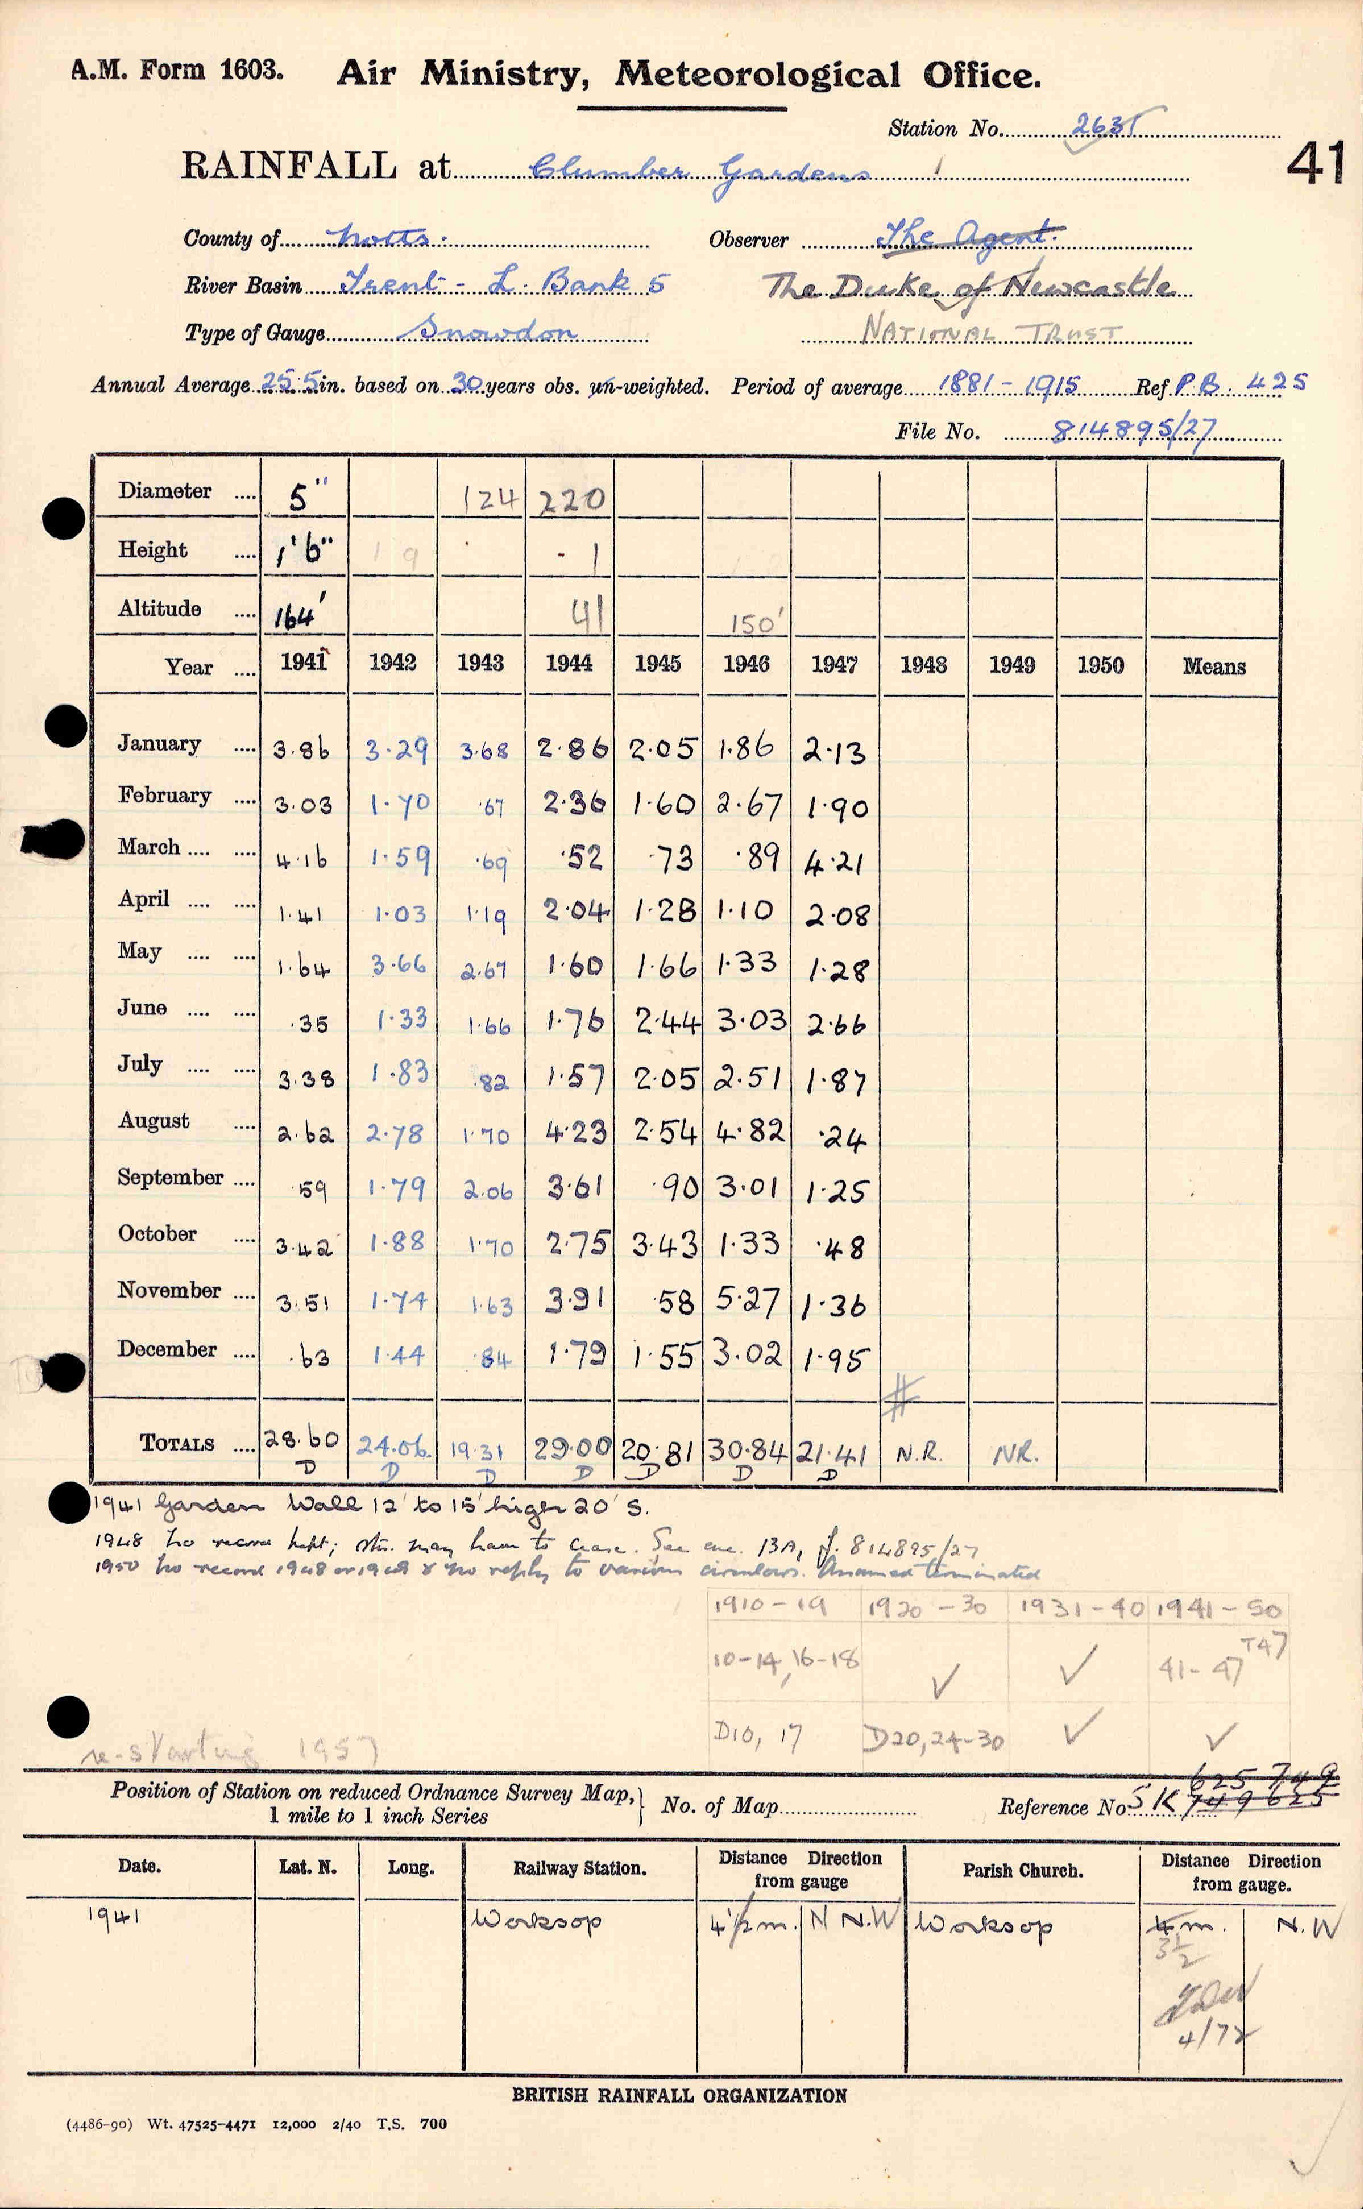 A.M. Form 1603. Air Ministry, Meteorological Office.
Station No. 2631
41
RAINFALL at Clumber Gardens 1
County of Notts. Observer The Agent.
River Basin Trent - L. Bank 5 The Duke of Newcastle
Type of Gauge Snowdon NATIONAL TRUST
Annual Average 25.5 in. based on 30 years obs. un-weighted. Period of average 1881 - 1915 Ref P.B. 425
File No. 814895/27
Diameter .... 5" 124 220
Height .... 1'6" 1 9 - 1
Altitude .... 164' 41 150'
Year .... 1941 1942 1943 1944 1945 1946 1947 1948 1949 1950 Means
January .... 3.86 3.29 3.68 2.86 2.05 1.86 2.13
February .... 3.03 1.70 .67 2.36 1.60 2.67 1.90
March .... .... 4.16 1.59 .69 .52 .73 .89 4.21
April .... .... 1.41 1.03 1.19 2.04 1.28 1.10 2.08
May .... .... 1.64 3.66 2.67 1.60 1.66 1.33 1.28
June .... .... .35 1.33 1.66 1.76 2.44 3.03 2.66
July .... .... 3.38 1.83 .82 1.57 2.05 2.51 1.87
August .... 2.62 2.78 1.70 4.23 2.54 4.82 .24
September .... .59 1.79 2.06 3.61 .90 3.01 1.25
October .... 3.42 1.88 1.70 2.75 3.43 1.33 .48
November .... 3.51 1.74 1.63 3.91 .58 5.27 1.36
December .... .63 1.44 .84 1.79 1.55 3.02 1.95
#
TOTALS .... 28.60 24.06 19.31 29.00 20.81 30.84 21.41 N.R. NR.
D D D D D D D
1941 Garden Wall 12' to 15' high 20' S.
1948 No record kept; stn. may have to cease. See enc. 13A, f. 814895/27
1950 No record 1948 or 1949 & no reply to various circulars. Assumed terminated
1910 - 19 1920 - 30 1931 - 40 1941 - 50
10-14, 16-18 ✓ ✓ 41- 47 T47
D10, 17 D20, 24-30 ✓ ✓
re-starting 1957
Position of Station on reduced Ordnance Survey Map, 1 mile to 1 inch Series } No. of Map Reference No. SK 749 625
625 749
Date. Lat. N. Long. Railway Station. Distance Direction from gauge Parish Church. Distance Direction from gauge.
1941 Worksop 4½ m. N N.W Worksop 4 m. N.W
3½
4/72
BRITISH RAINFALL ORGANIZATION
(4486-90) Wt. 47525-4471 12,000 2/40 T.S. 700